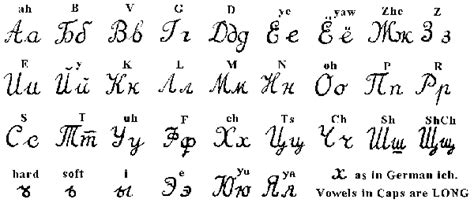 ah B V G D ye yaw Zhe Z
Аа Бб Вв Гг Ддд Ее Ёё Жж Зз
E y K L M N oh P R
Ии Йй Кк Лл Мм Нн Оо Пп Рр
S T uh F ch Ts Ch Sh ShCh
Сс Тт Уу Фф Хх Цц Чч Шш Щщ
hard soft i e yu ya x as in German ich.
ъ ь ы Ээ Юю Яя Vowels in Caps are LONG